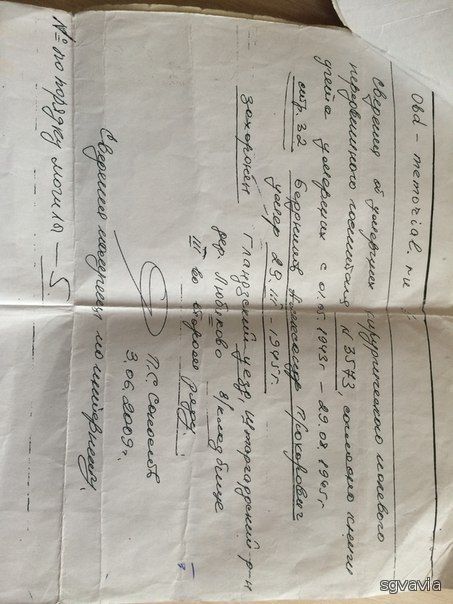 Obd - memorial.ru
Сведения об умерших хирургического полевого
передвижного госпиталя № 3573, согласно книги
учета умерших с 01.05.1943г - 29.08.1945г
стр. 32 Александр Прохорович
умер 29.III - 1945г.
захоронен Гландский уезд, Штаргардский р-н
дер. Любяково в/кладбище
III во втором ряду.
П.С. 
3.06.2009г.
Сведения получены по интернету.
№ по порядку могила - 5
sgvavia